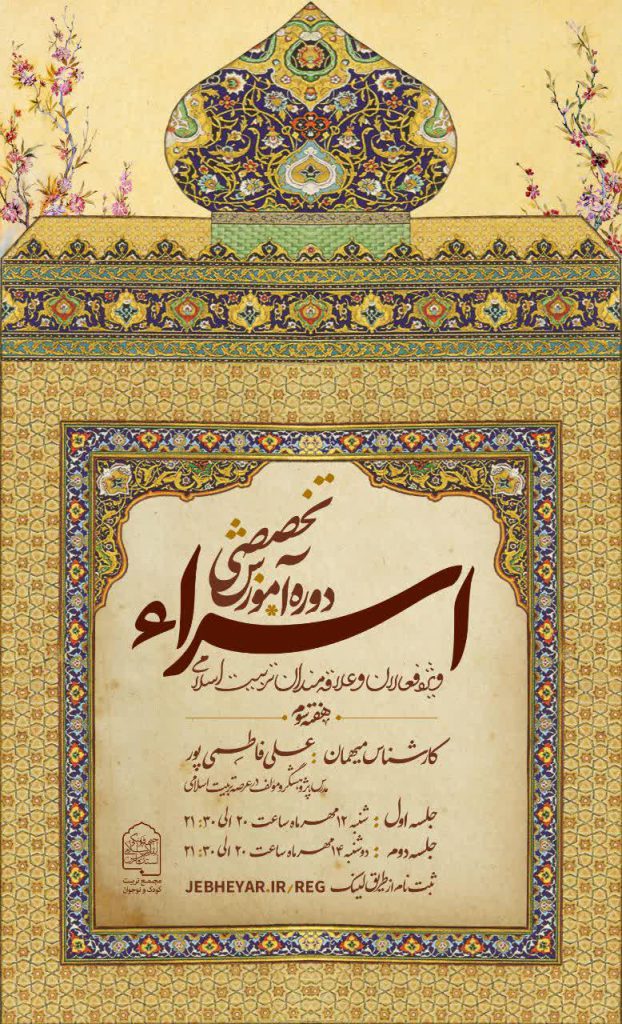 دوره آموزش تخصصی
اسراء
ویژه فعالان و علاقه‌مندان تربیت اسلامی
هفته سوم
کارشناس میهمان : علی فاطمی پور
مدرس، پژوهشگر و مولف در عرصه تربیت اسلامی
جلسه اول : شنبه ۱۲ مهر ماه ساعت ۲۰ الی ۲۱:۳۰
جلسه دوم : دوشنبه ۱۴ مهر ماه ساعت ۲۰ الی ۲۱:۳۰
ثبت نام از طریق لینک JEBHEYAR.IR/REG
مجمع تربیت
کودک و نوجوان